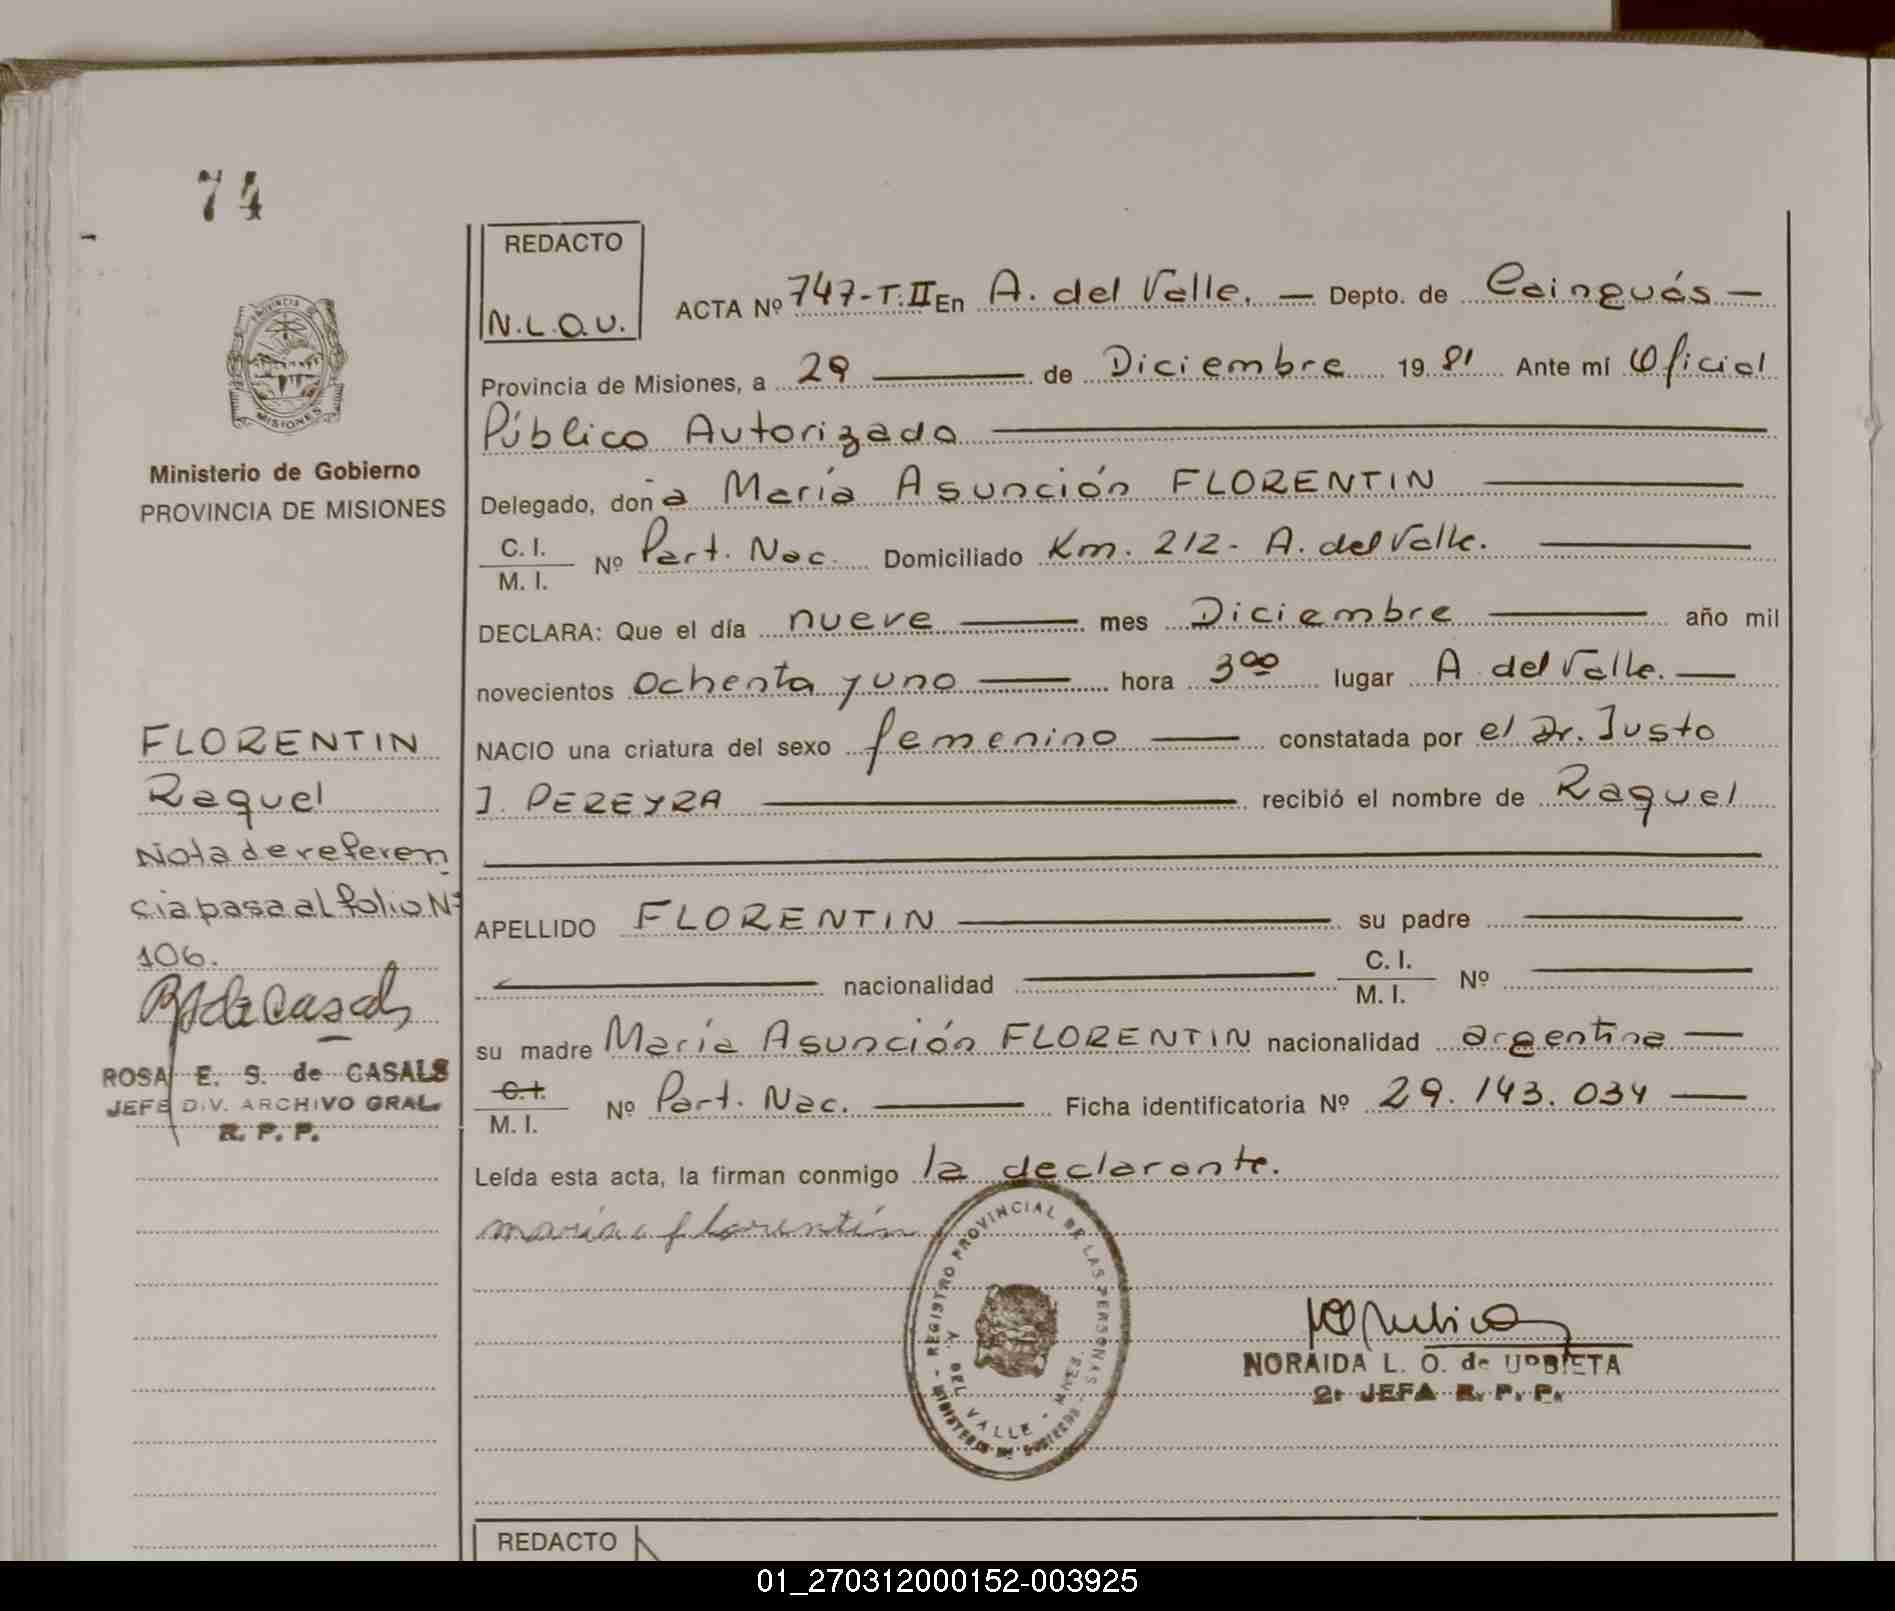 74
REDACTO
N.L.O.U.
ACTA Nº 747-T.II En A. del Valle. — Depto. de Cainguás —
Provincia de Misiones, a 29 de Diciembre 1981 Ante mí Oficial
Público Autorizado
Delegado, doña María Asunción FLORENTIN
C. I.
M. I. Nº Part. Nac. Domiciliado Km. 212- A. del Valle.
DECLARA: Que el día nueve mes Diciembre año mil
novecientos ochenta y uno hora 3⁰⁰ lugar A. del Valle. —
NACIO una criatura del sexo femenino constatada por el Dr. Justo
J. PEREYRA recibió el nombre de Raquel
APELLIDO FLORENTIN su padre
nacionalidad C. I.
M. I. Nº
su madre María Asunción FLORENTIN nacionalidad argentina —
C. I.
M. I. Nº Part. Nac. Ficha identificatoria Nº 29.143.034 —
Leída esta acta, la firman conmigo la declarante.
maria a florentín
PROVINCIA
MISIONES
Ministerio de Gobierno
PROVINCIA DE MISIONES
FLORENTIN
Raquel
Nota de referen
cia pasa al folio Nº
106.
R S de Casals
ROSA E. S. de CASALS
JEFE DIV. ARCHIVO GRAL.
R. P. P.
REGISTRO PROVINCIAL DE LAS PERSONAS
MINISTERIO DE GOBIERNO
DEL VALLE - MNES.
NORAIDA L. O. de URBIETA
2ª JEFA R. P. P.
REDACTO
01_270312000152-003925